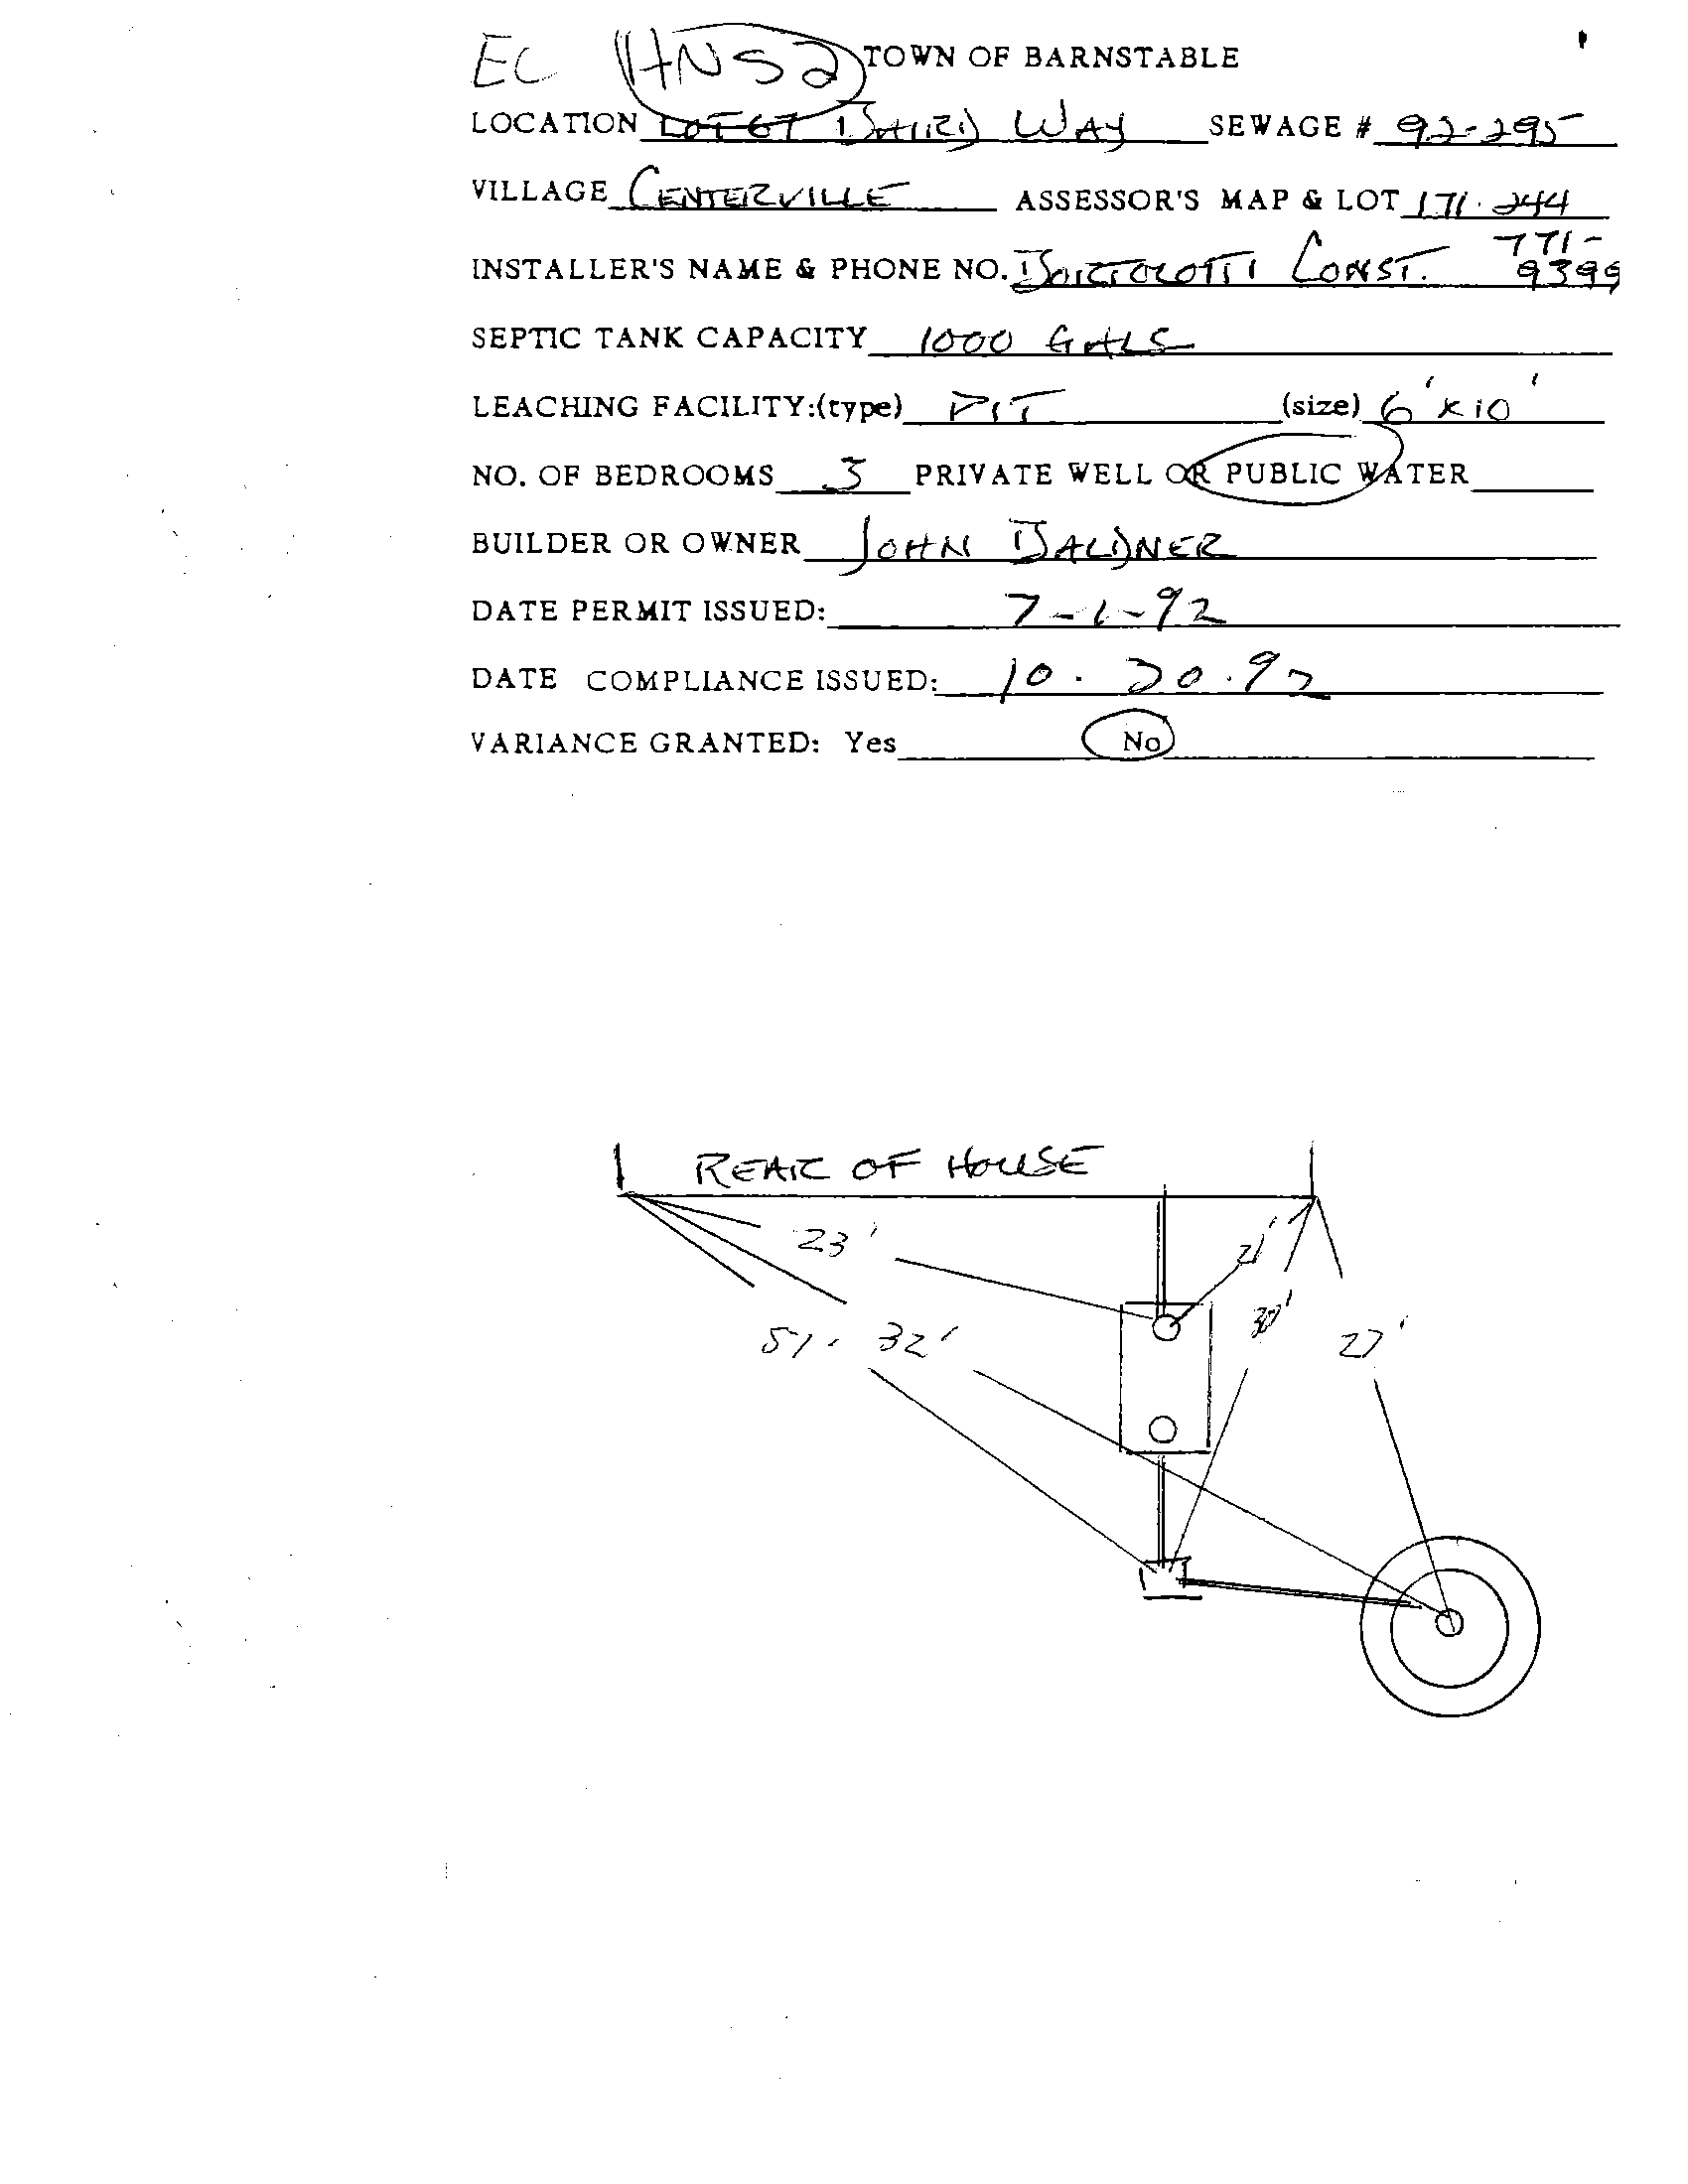 EC HNS2 TOWN OF BARNSTABLE
LOCATION LOT 67 BAIRD WAY SEWAGE # 92-295
VILLAGE CENTERVILLE ASSESSOR'S MAP & LOT 171.244
771-
INSTALLER'S NAME & PHONE NO. BORTOLOTTI CONST. 9399
SEPTIC TANK CAPACITY 1000 GALS
LEACHING FACILITY:(type) PIT (size) 6' x 10'
NO. OF BEDROOMS 3 PRIVATE WELL OR PUBLIC WATER
BUILDER OR OWNER JOHN BALDNER
DATE PERMIT ISSUED: 7-1-92
DATE COMPLIANCE ISSUED: 10.20.92
VARIANCE GRANTED: Yes No
REAR OF HOUSE
23' 21'
30'
51' 32' 27'